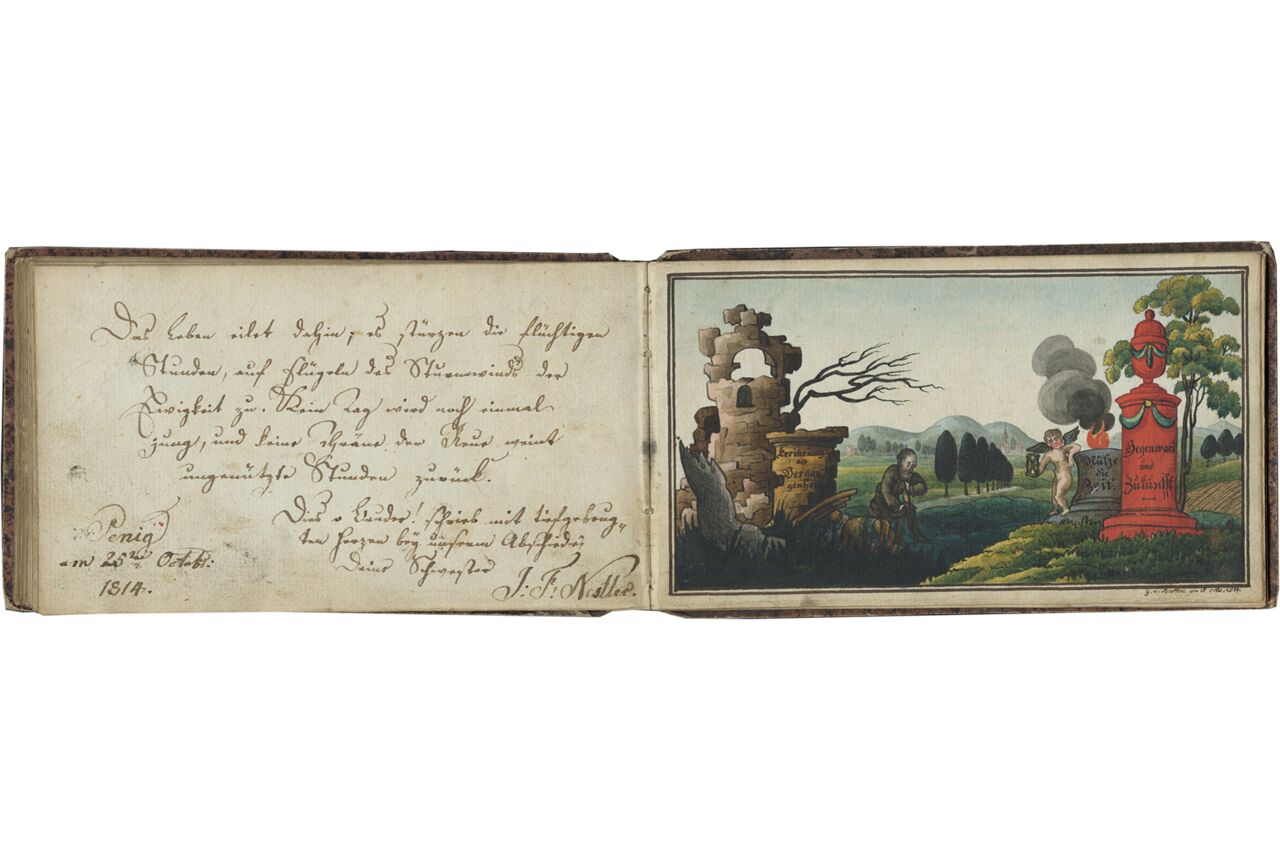 Das Leben eilet dahin; es stürzen die flüchtigen
Stunden, auf Flügeln des Sturmwinds der
Ewigkeit zu. Kein Tag wird noch einmal
jung, und keine Thräne der Reue weint
ungenützte Stunden zurück.
Dies o schrieb mit tiefgebeug-
ten Herzen bey unserm Abschiede
Deine Schwester
J: F: Nestler.
Penig
am 25 Octobr:
1814.
Erinrung
an
Vergan
genheit
Nütze
die
Zeit.
Gegenwart
und
Zukunft